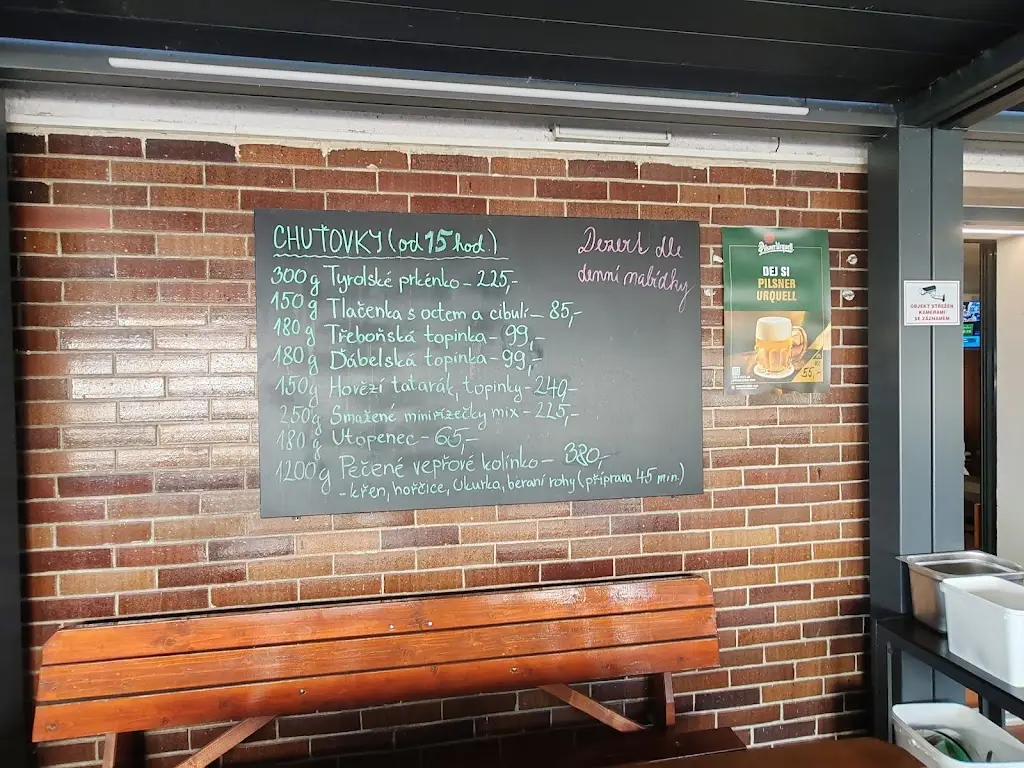 CHUŤOVKY (od 15 hod.)
300g Tyrolské prkénko - 225,-
150g Tlačenka s octem a cibulí - 85,-
180g Třeboňská topinka - 99,-
180g Ďábelská topinka - 99,-
150g Hovězí tatarák, topinky - 240,-
250g Smažené miniřízečky mix - 225,-
180g Utopenec - 65,-
1200g Pečené vepřové kolínko - 380,-
- křen, hořčice, okurka, beraní rohy (příprava 45 min.)
Dezert dle
denní nabídky
Pilsner Urquell
DEJ SI
PILSNER
URQUELL
55,-
OBJEKT STŘEŽEN
KAMERAMI
SE ZÁZNAMEM